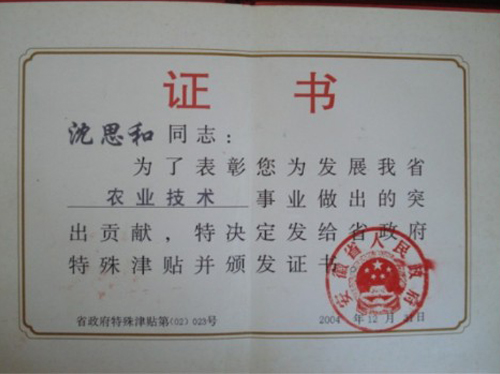 证 书
沈思和同志：
为了表彰您为发展我省
农业技术 事业做出的突
出贡献，特决定发给省政府
特殊津贴并颁发证书
安徽省人民政府
省政府特殊津贴第(02) 023号
2004 年 12 月 日